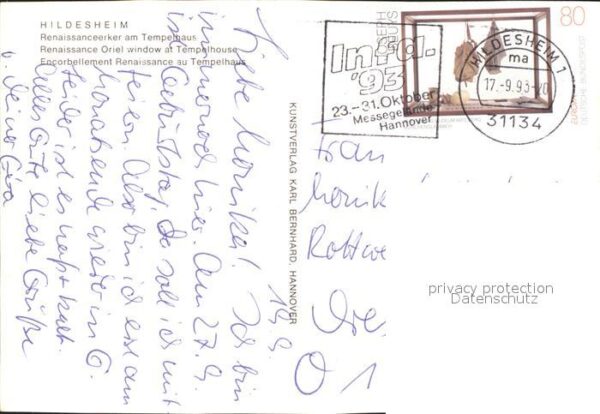 HILDESHEIM
Renaissanceerker am Tempelhaus
Renaissance Oriel window at Tempelhouse
Encorbellement Renaissance au Tempelhaus
14.9.
Liebe Monika! Ich bin
immer noch hier. Am 27.9.
ist Geburtstag, da soll ich mit-
feiern. Also bin ich erst am
Monatsende wieder in G.
Leider ist es naß + kalt.
Alles Gute, liebe Grüße
v. Deiner Gita
KUNSTVERLAG KARL BERNHARD, HANNOVER
Infa.
'93
23.-31. Oktober
Messegelände
Hannover
80
DEUTSCHE BUNDESPOST
EUROPA
HILDESHEIM 1
ma
17.-9.93-20
31134
Frau
Monika
Rottwe
privacy protection
Datenschutz